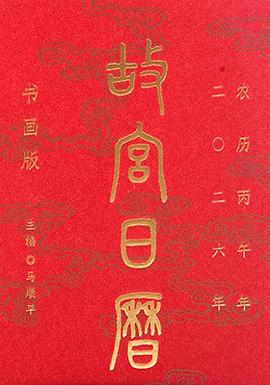 故宫日历
农历丙午年
二〇二六年
书画版
主编◎马顺平